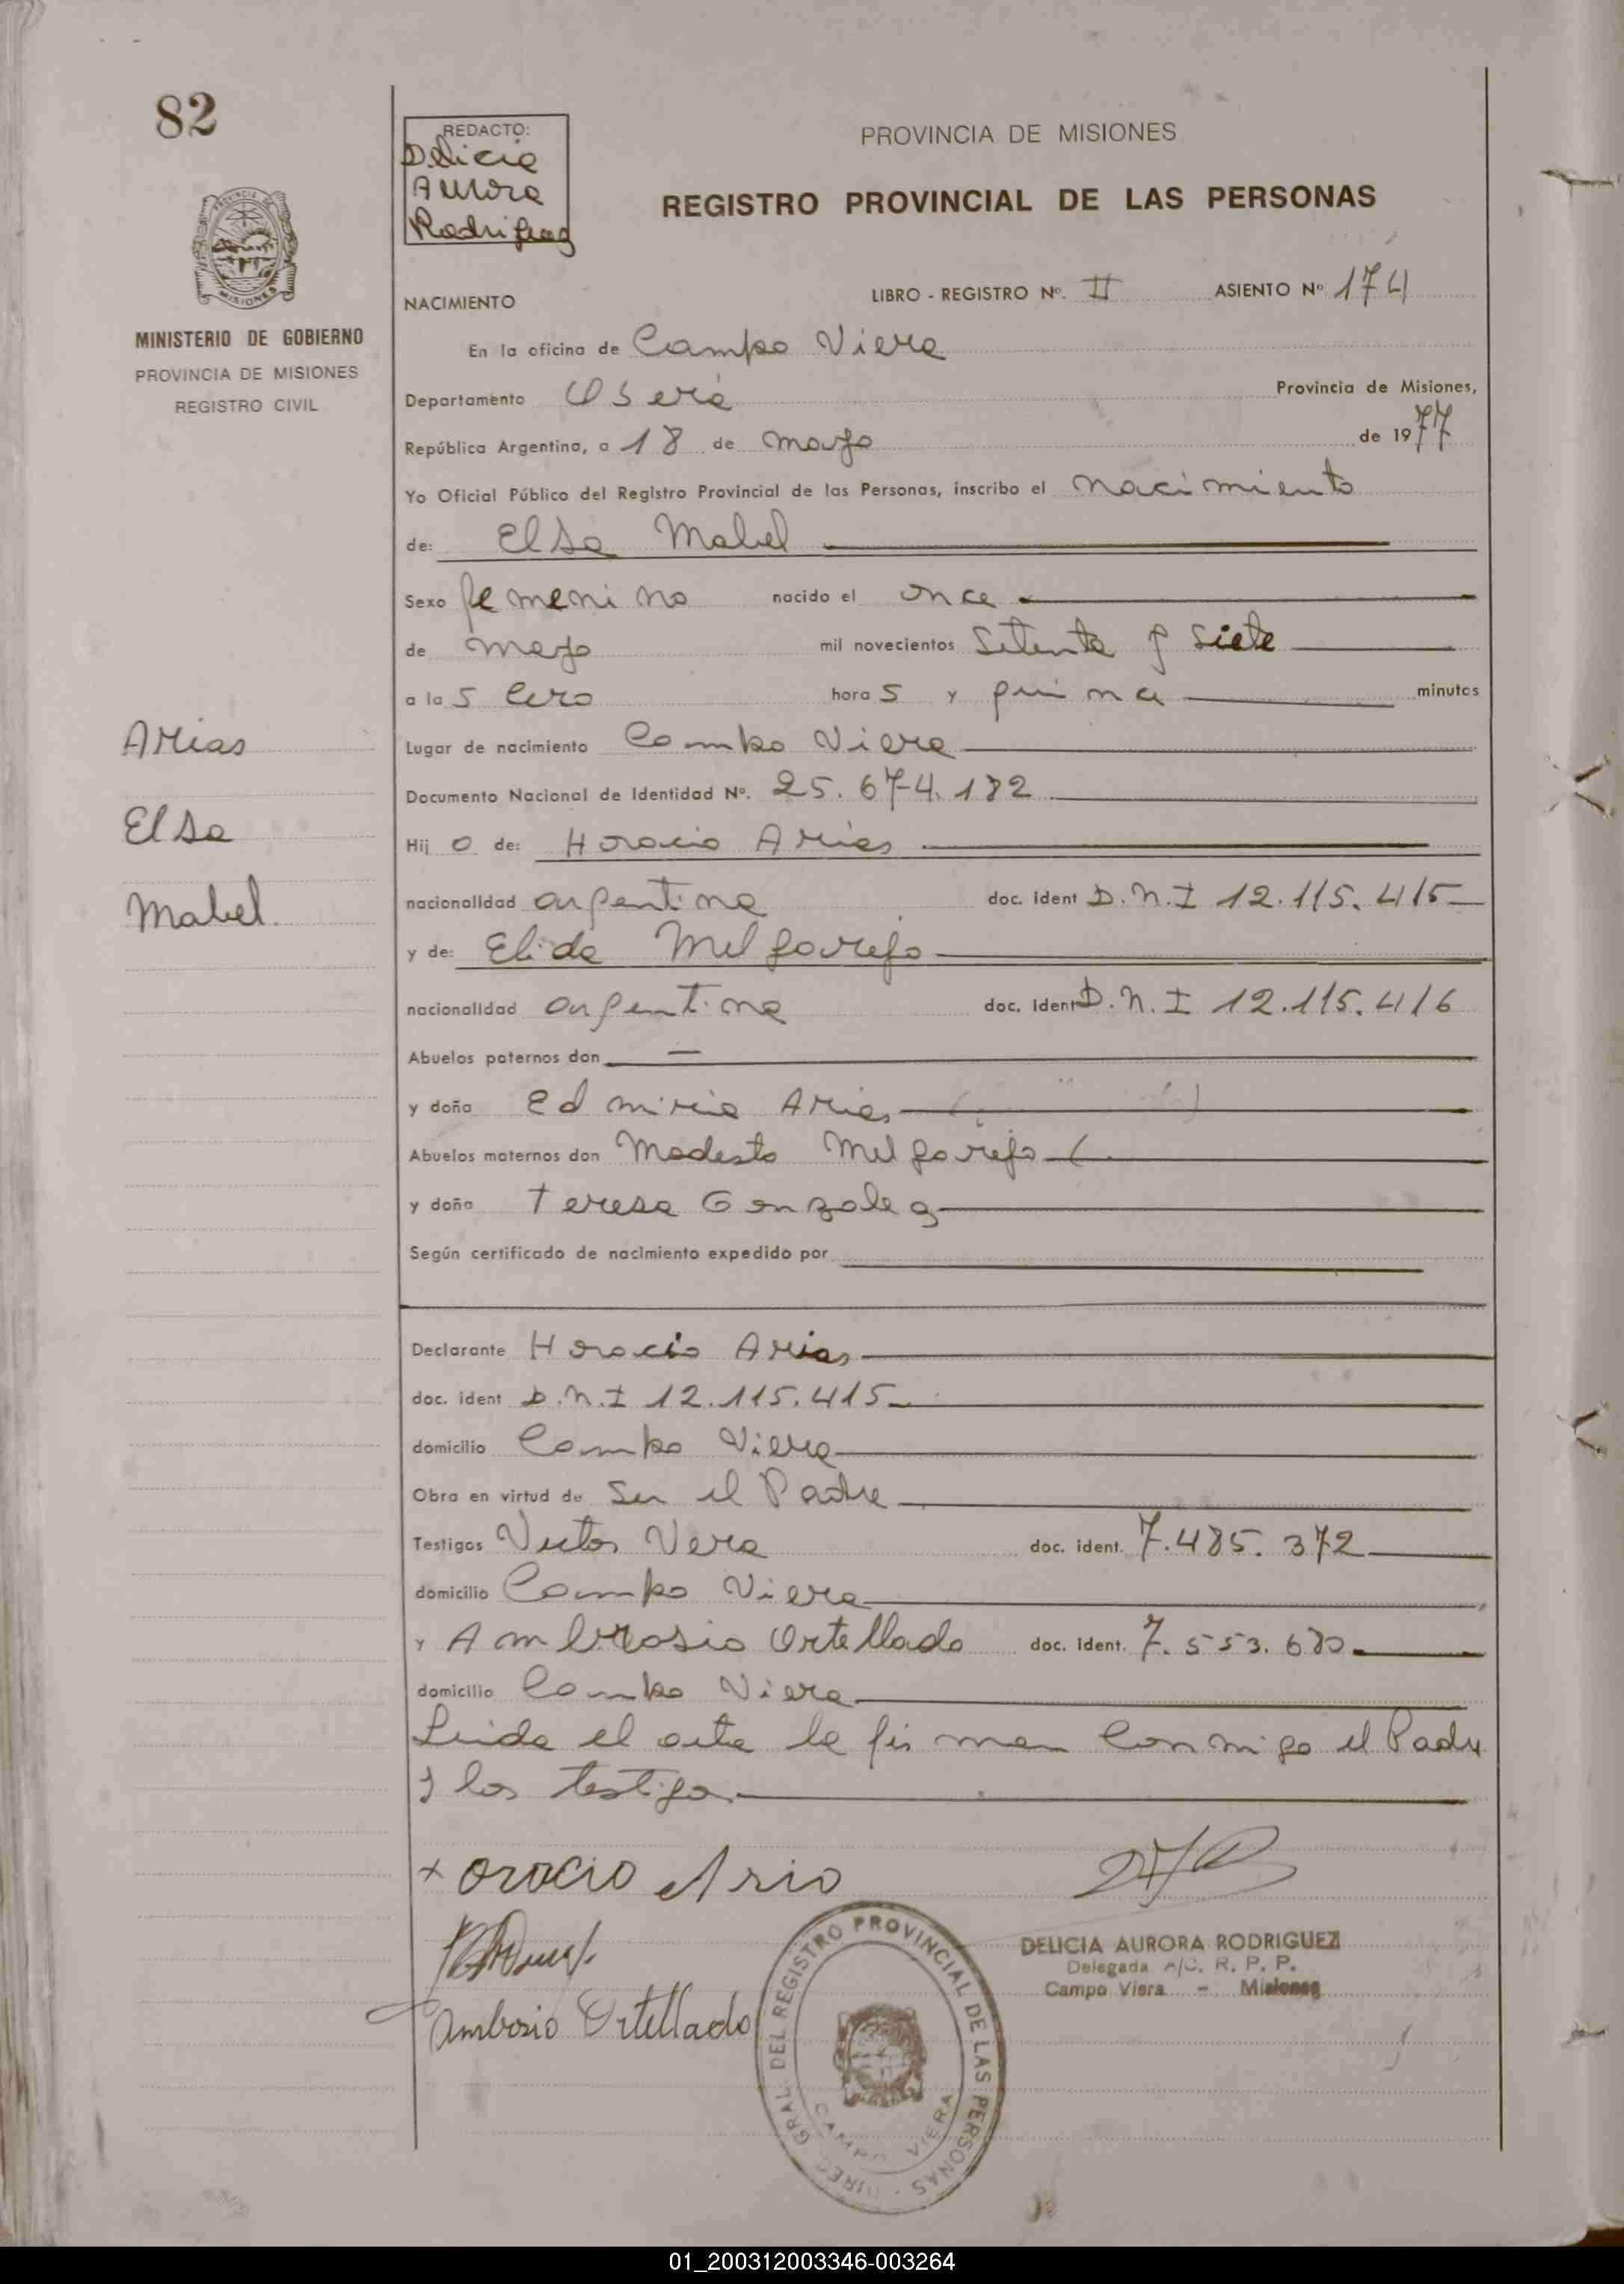 82
REDACTO:
Delicia
Aurora
Rodriguez
PROVINCIA DE MISIONES
REGISTRO PROVINCIAL DE LAS PERSONAS
MISIONES
MINISTERIO DE GOBIERNO
PROVINCIA DE MISIONES
REGISTRO CIVIL
NACIMIENTO LIBRO - REGISTRO Nº. II ASIENTO Nº 174
En la oficina de Campo Viera
Departamento Oberá Provincia de Misiones,
República Argentina, a 18 de mayo de 1977
Yo Oficial Público del Registro Provincial de las Personas, inscribo el nacimiento
de: Elsa Mabel
Sexo femenino nacido el once
de mayo mil novecientos setenta y siete
a la s cero hora s y quince minutos
Arias
Lugar de nacimiento Campo Viera
Documento Nacional de Identidad Nº. 25.674.182
Elsa
Hij o de: Horacio Arias
Mabel
nacionalidad argentina doc. ident D.N.I 12.115.415
y de: Elida Melgarejo
nacionalidad argentina doc. ident D.N.I 12.115.416
Abuelos paternos don —
y doña Edmiria Arias
Abuelos maternos don Modesto Melgarejo
y doña Teresa Gonzalez
Según certificado de nacimiento expedido por
Declarante Horacio Arias
doc. ident D.N.I 12.115.415
domicilio Campo Viera
Obra en virtud de ser el Padre
Testigos Victor Vera doc. ident. 7.485.372
domicilio Campo Viera
y Ambrosio Ortellado doc. ident. 7.553.680
domicilio Campo Viera
Leida el acta la firman conmigo el Padre
y los testigos
x orocio Ario
DELICIA AURORA RODRIGUEZ
Delegada A/C. R. P. P.
Campo Viera - Misiones
Ambosio Ortellado
DIREC. GRAL. DEL REGISTRO PROVINCIAL DE LAS PERSONAS -
CAMPO VIERA
01_200312003346-003264